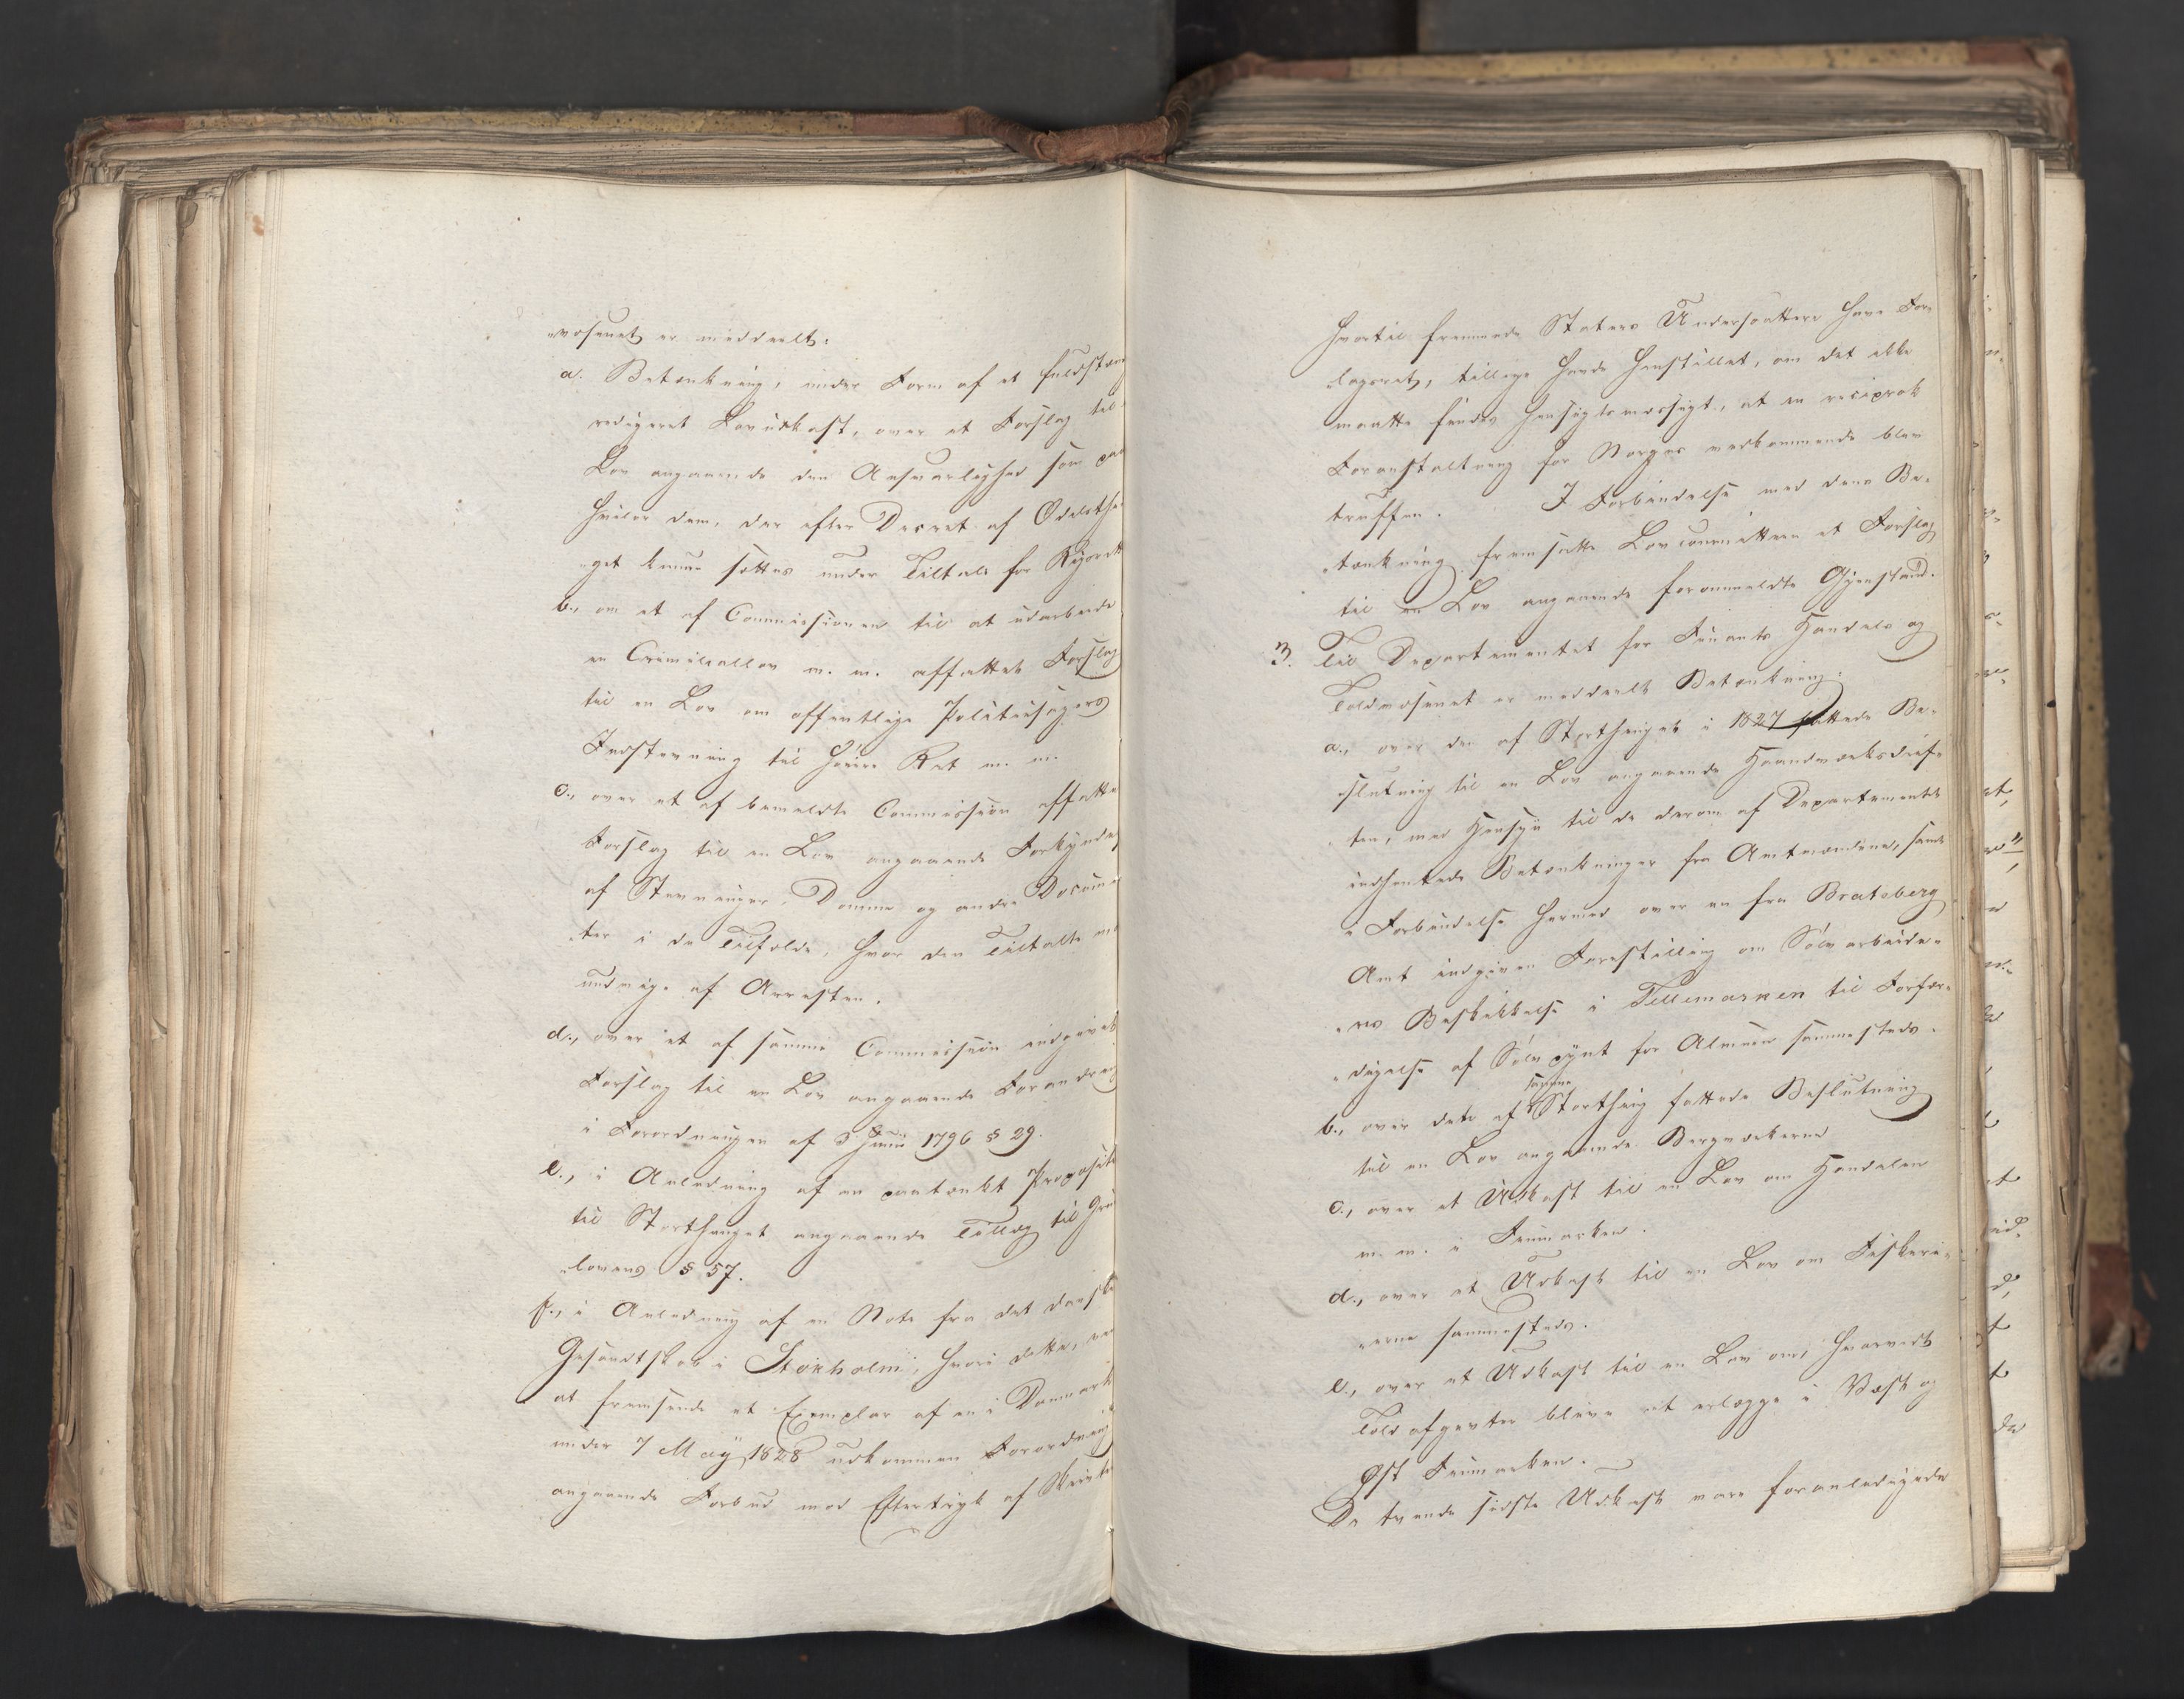 „væsenet er meddeelt:
a. Betænkning, under Form af et fuldstæn
redigeret Lovudkast, over et Forslag til
Lov angaaende den Ansvarlighed som paa
hviler dem, der efter Decret af Odelsthi
„get kunne sættes under Tiltale for Rigsrett
b., om et af Commissionen til at udarbeide
en Criminallov m. m. affattet Forslag
til en Lov om offentlige Politiesagers
Indstevning til høiere Ret m. m.
c., over et af bemeldte Commission affatte
Forslag til en Lov angaaende Forkyndes
af Stevninger, Domme og andre Docume
„ter i de Tilfælde, hvor den Tiltalte er
undvigt af Arresten.
d., over et af samme Commission indgivet
Forslag til en Lov angaaende Forandring
i Forordningen af 3 Junii 1796 § 29.
e., i Anledning af en paatænkt Proposit
til Storthinget angaaende Tillæg til Gru
„lovens § 57.
f., i Anledning af en Note fra det danske
Gesandtskab i Stokholm, hvori dette, ved
at fremsende et Exemplar af en i Danmark
under 7 May 1828 udkommen Forordning
angaaende Forbud mod Eftertryk af Skrivter
hvortil fremmede Staters Undersaatter have For„
„lagsret, tillige havde henstillet, om det ikke
maatte findes hensigtsmæssigt, at en reciprok
Foranstaltning for Norges vedkommende blev
truffen. I Forbindelse med denne Be„
„tænkning fremsatte Lovcommitteen et Forslag
til en Lov angaaende forommeldte Gjenstand.
3. Til Departementet for Finants Handels og
Toldvæsenet er meddeelt Betænkning:
a., over den af Storthinget i 1827 fattede Be„
„slutning til en Lov angaaende Haandværksdrif„
„ten, med Hensyn til de derom af Departementet
indhentede Betænkninger fra Amtmændene, samt
i Forbindelse hermed over en fra Bratsberg
Amt indgiven Forestilling om Sølvarbeide„
„res Beskikkelse i Tellemarken til Forfær„
„digelse af Sølvpynt for Almuen sammesteds.
b., over dets af samme Storthing fattede Beslutning
til en Lov angaaende Bergværkerne
c., over et Udkast til en Lov om Handelen
m. m. i Finmarken.
d., over et Udkast til en Lov om Fiskeri„
„erne sammesteds.
e., over et Udkast til en Lov om, hvorvidt
Toldafgivter blive at erlægge i Vest og
Øst Finmarken.
De tvende sidste Udkast vare foranledigede